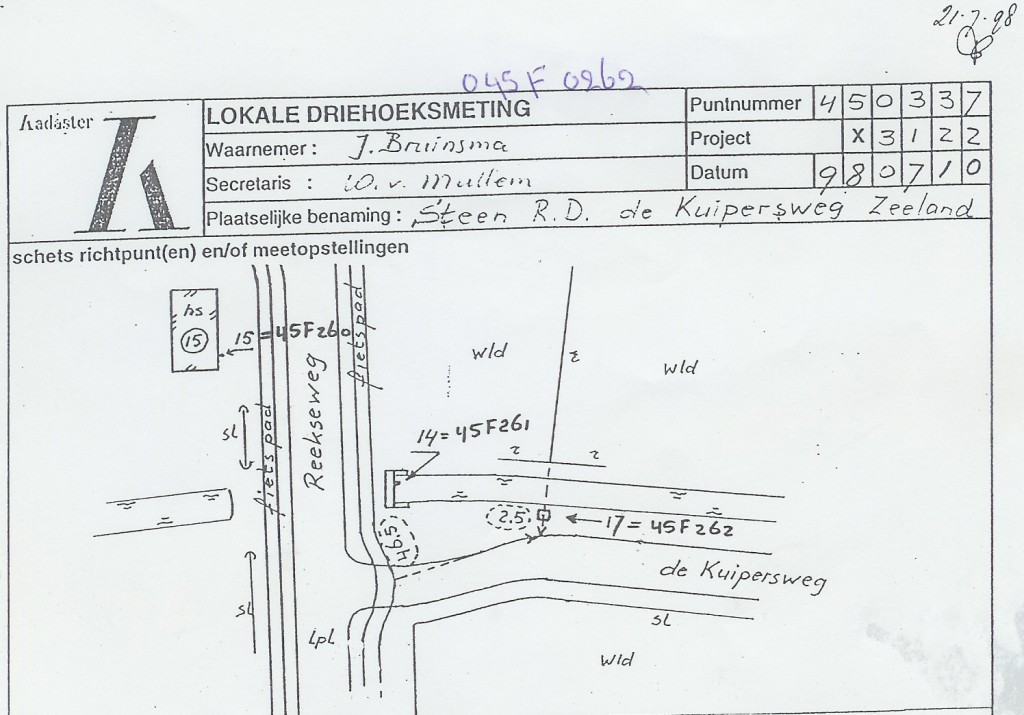 21-7-98
045F 0262
Kadaster
LOKALE DRIEHOEKSMETING
Puntnummer 4 5 0 3 3 7
Waarnemer : J. Bruinsma
Project X 3 1 2 2
Secretaris : W. v. Mullem
Datum 9 8 0 7 1 0
Plaatselijke benaming : Steen R.D. de Kuipersweg Zeeland
schets richtpunt(en) en/of meetopstellingen
hs
15
15 = 45F260
fietspad
Reekseweg
wld
wld
sL
fietspad
14 = 45F261
2.5
17 = 45F262
46.5
de Kuipersweg
sL
sL
LpL
wld